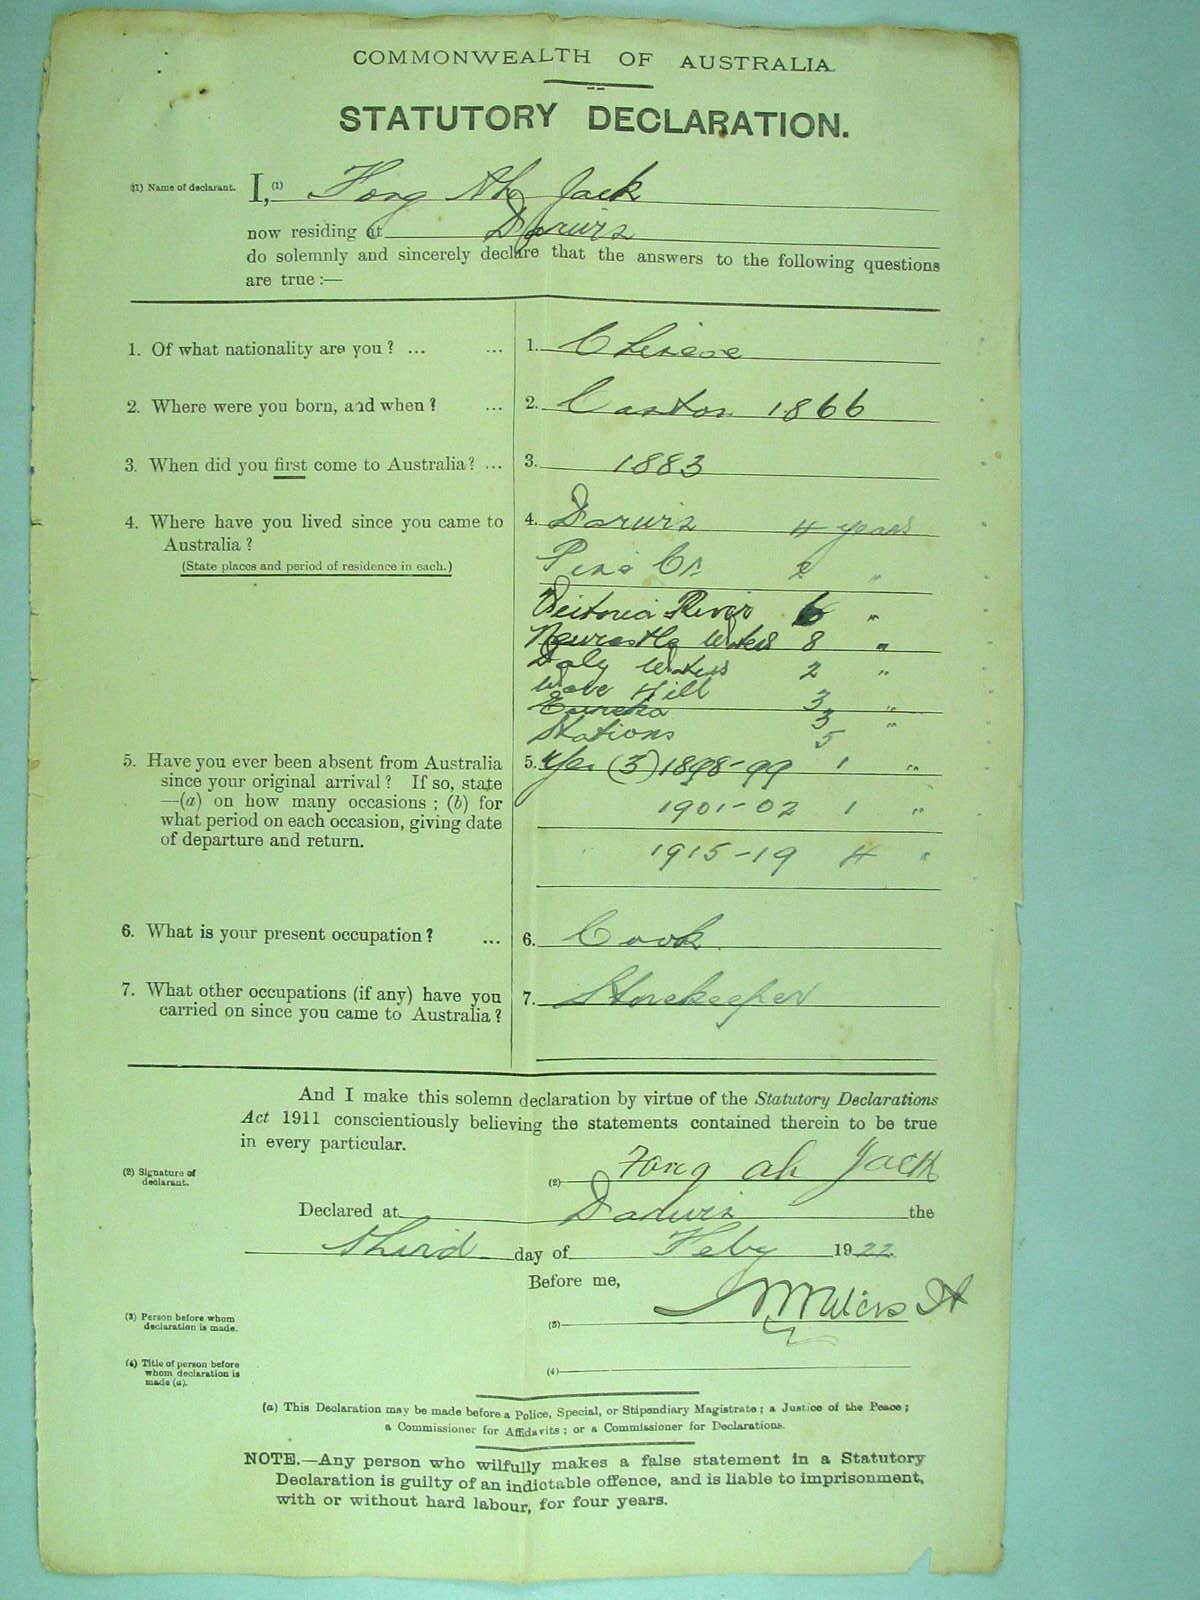 COMMONWEALTH OF AUSTRALIA.
STATUTORY DECLARATION.
(1) Name of declarant. I,(1) Fong Ah Jack
now residing at Darwin
do solemnly and sincerely declare that the answers to the following questions
are true :—
1. Of what nationality are you ? ... ... 1. Chinese
2. Where were you born, and when ? ... 2. Canton 1866
3. When did you first come to Australia ? ... 3. 1883
4. Where have you lived since you came to 4. Darwin 4 years
Australia ?
(State places and period of residence in each.)
Pine Ck 2 "
Victoria River 6 "
Newcastle Waters 8 "
Daly Waters 2 "
Wave Hill 3 "
Eureka 3 "
Stations 5
5. Have you ever been absent from Australia 5. Yes (3) 1898-99 1 "
since your original arrival ? If so, state
—(a) on how many occasions ; (b) for 1901-02 1 "
what period on each occasion, giving date
of departure and return. 1915-19 4 "
6. What is your present occupation ? ... 6. Cook
7. What other occupations (if any) have you 7. Storekeeper
carried on since you came to Australia ?
And I make this solemn declaration by virtue of the Statutory Declarations
Act 1911 conscientiously believing the statements contained therein to be true
in every particular.
(2) Signature of
declarant.
(2) Fong ah Jack
Declared at Darwin the
third day of Feby 1922
Before me,
(3) Person before whom
declaration is made.
(3)
(4) Title of person before
whom declaration is
made (a).
(4)
(a) This Declaration may be made before a Police, Special, or Stipendiary Magistrate ; a Justice of the Peace ;
a Commissioner for Affidavits ; or a Commissioner for Declarations.
NOTE.—Any person who wilfully makes a false statement in a Statutory
Declaration is guilty of an indictable offence, and is liable to imprisonment,
with or without hard labour, for four years.